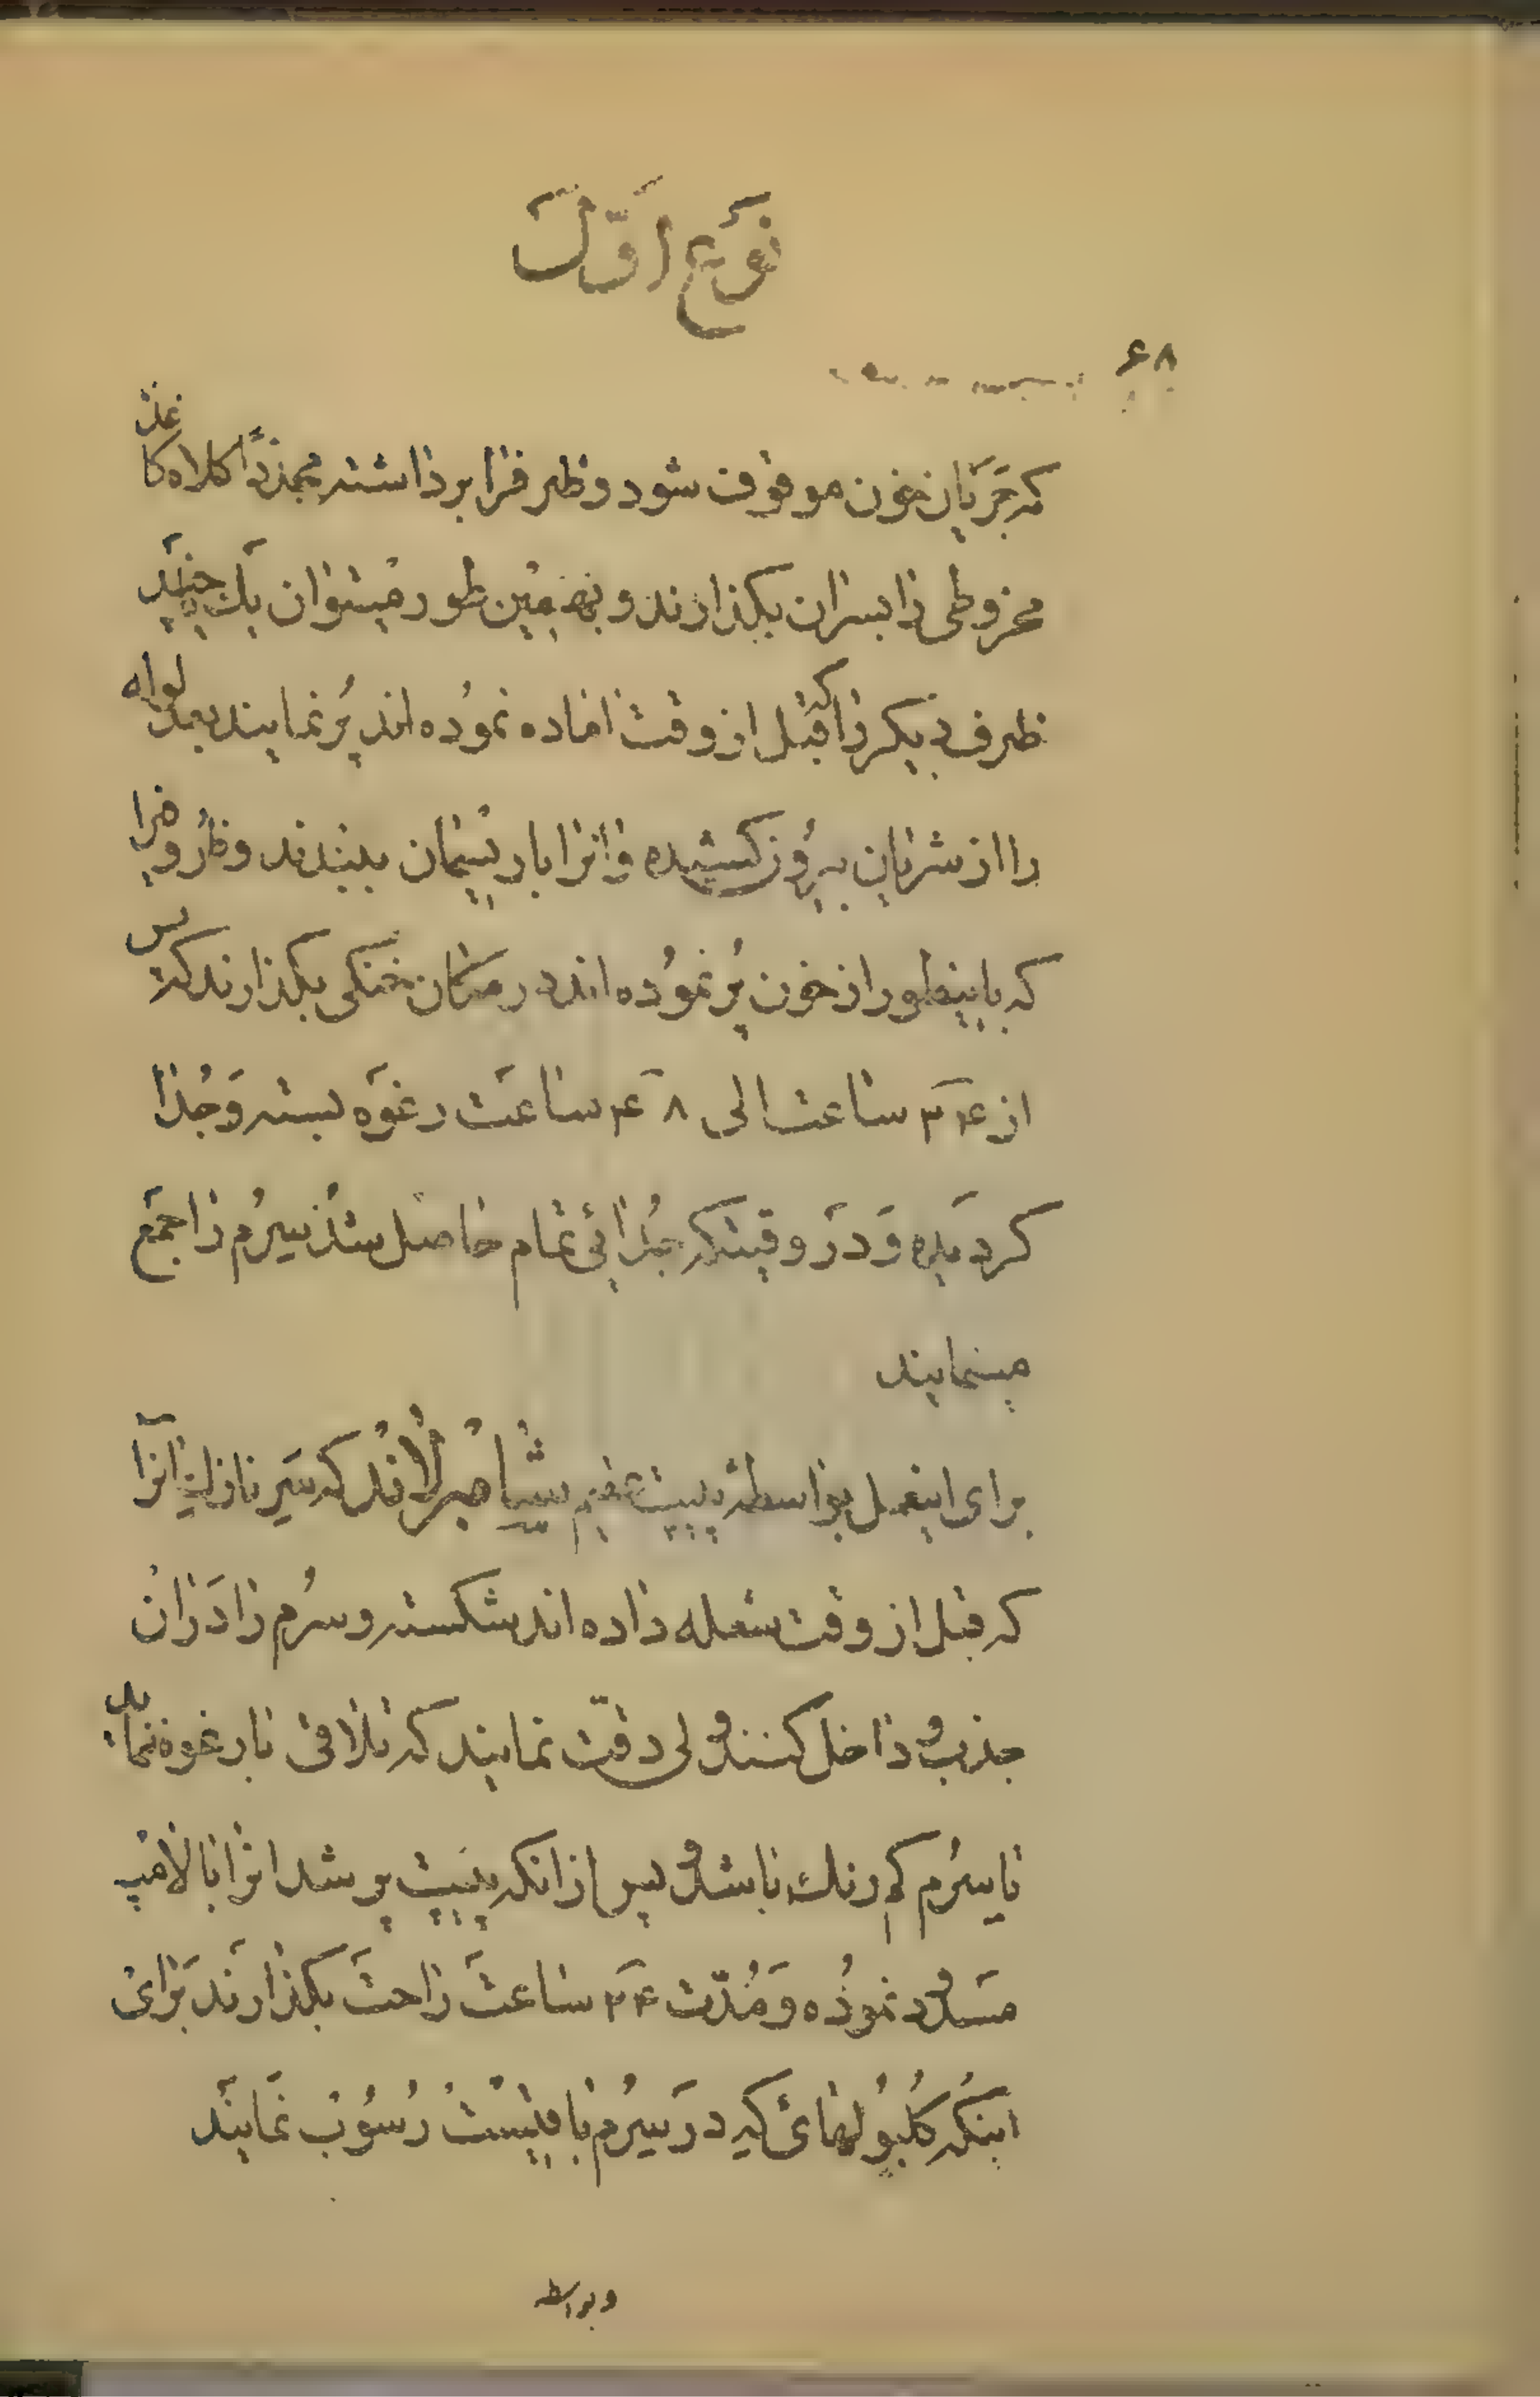 نوع اول
۶۸
که جریان خون موقوف شود و ظرف را برداشته مجدداً کلاه کاغذ
مخروطی را بسران بکذارند و بهمین طور میتوان یک چند
ظرف دیکر را که قبل از وقت اماده نموده اند پر نمایند بعد لوله
را از شریان بیرون کشیده و انرا با ریسمان ببندند و ظروف را
که باینطور از خون پر نموده اند در مکان خنکی بکذارند که پس
از ۲۴ ساعت الی ۴۸ ساعت رغوه بسته و جدا
کردیده و در وقتیکه جدائی تمام حاصل شد سیرم را جمع
مینمایند
برای اینعمل بواسطه پیپت عقیم شامبرلاند که سر نازک آنرا
که قبل از وقت شعله داده اند شکسته و سرم را در ان
جذب و داخل کنند ولی دقت نمایند که تلاقی با رغوه ننماید
تا سرم کم رنک باشد و پس از انکه پیپت پر شد انرا با لامپ
مسدود نموده و مدت ۲۴ ساعت راحت بکذارند برای
اینکه کلبولهائی که در سیرم باقیست رسوب نمایند
و بواسطه